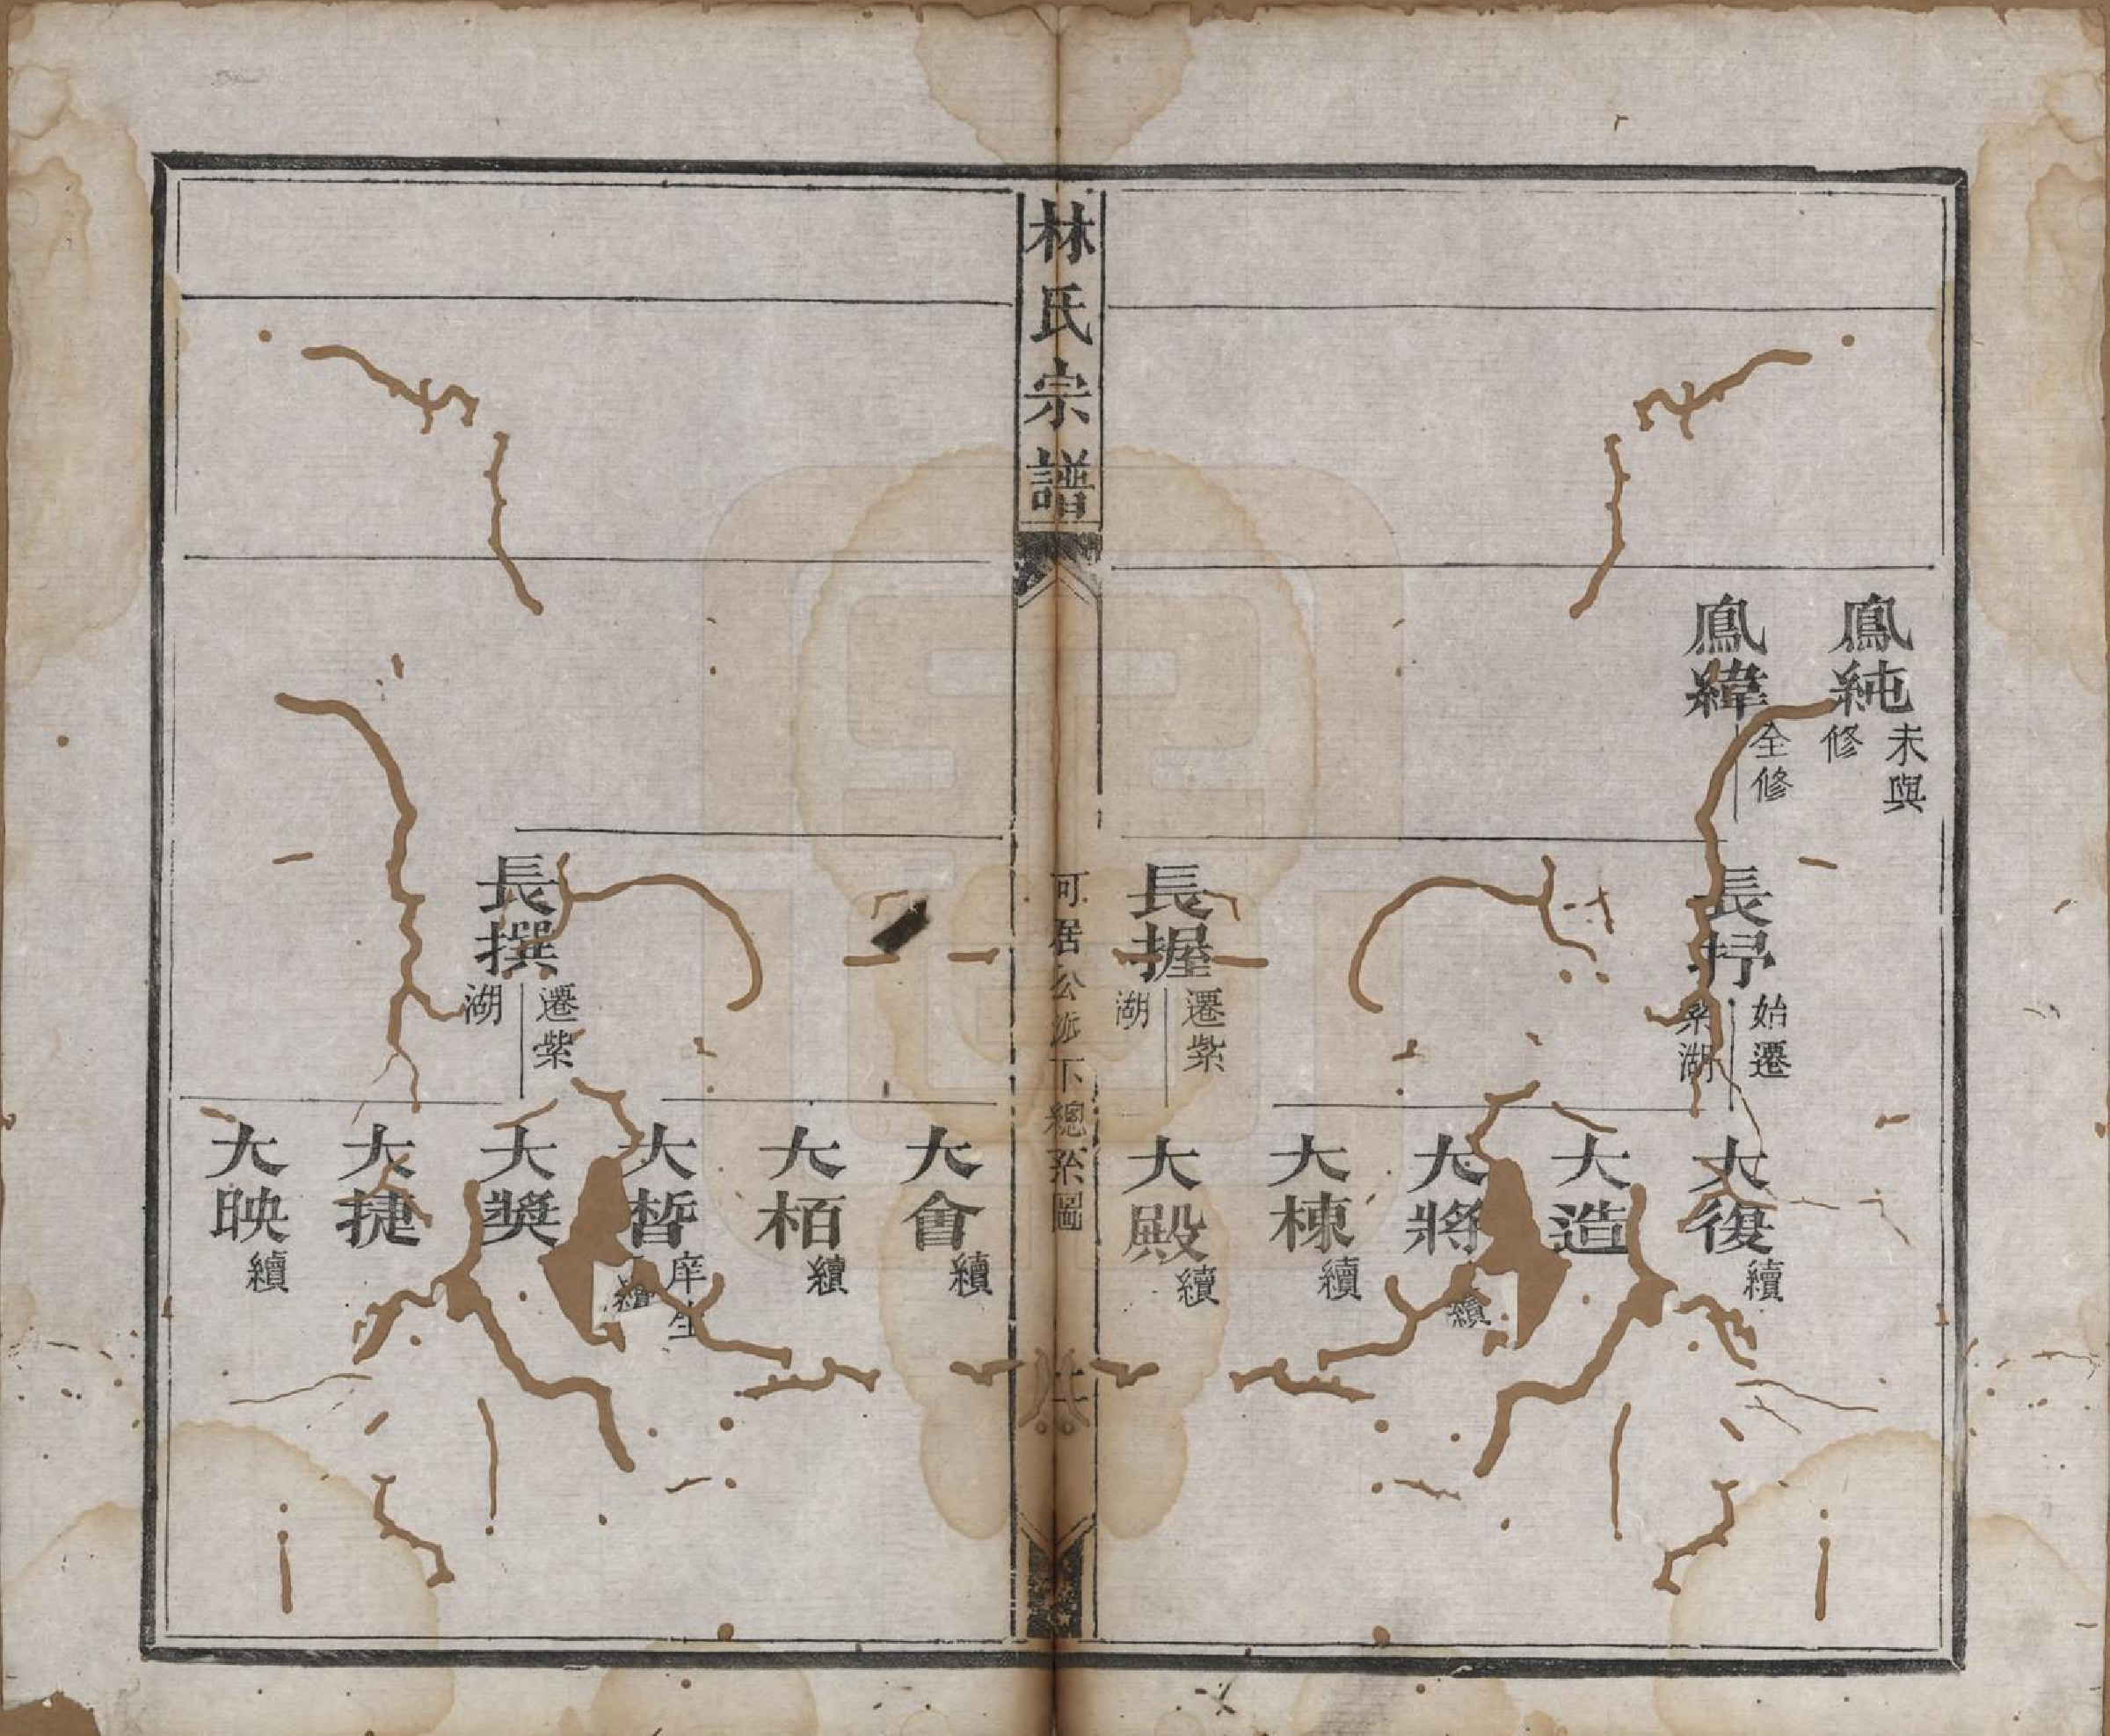 鳳純
未與
修
鳳緯
全修
長抒
始遷
紫湖
大復
續
大造
大將
續
大棟
續
長握
遷紫
湖
大殿
續
林氏宗譜
可居公派下總系圖
大會
續
大栢
續
大晢
庠生
續
長撰
遷紫
湖
大奬
大捷
大映
續